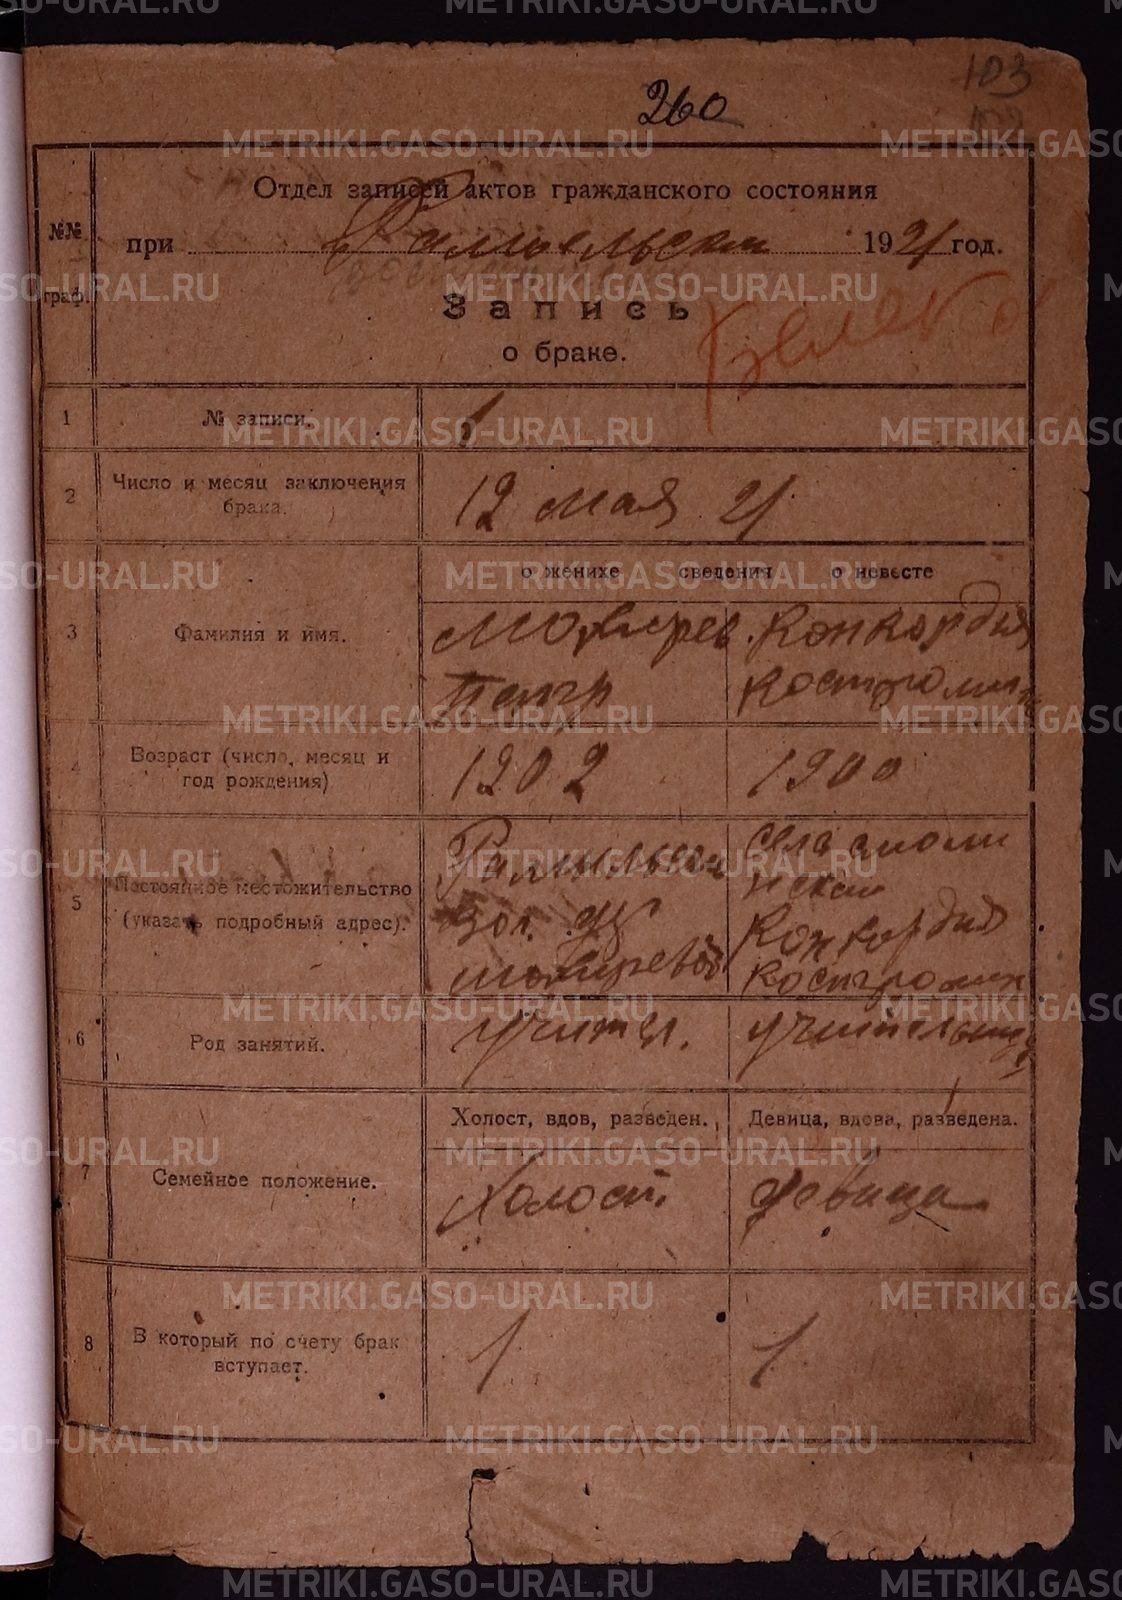 103
260
Отдел записей актов гражданского состояния
№№ граф.
при Рамыльском 1921 год.
Запись
о браке.
1 № записи. 1
2 Число и месяц заключения брака. 12 мая 21
о женихе сведения о невесте
3 Фамилия и имя.
Петр
Конкордия
Костромин
4 Возраст (число, месяц и год рождения) 1902 1900
5 Постоянное местожительство (указать подробный адрес).
вол.
села
Конкордия
Костромин
6 Род занятий. учител. учительница
Холост, вдов, разведен. Девица, вдова, разведена.
7 Семейное положение. Холост. девица
8 В который по счету брак вступает. 1 1
METRIKI.GASO-URAL.RU